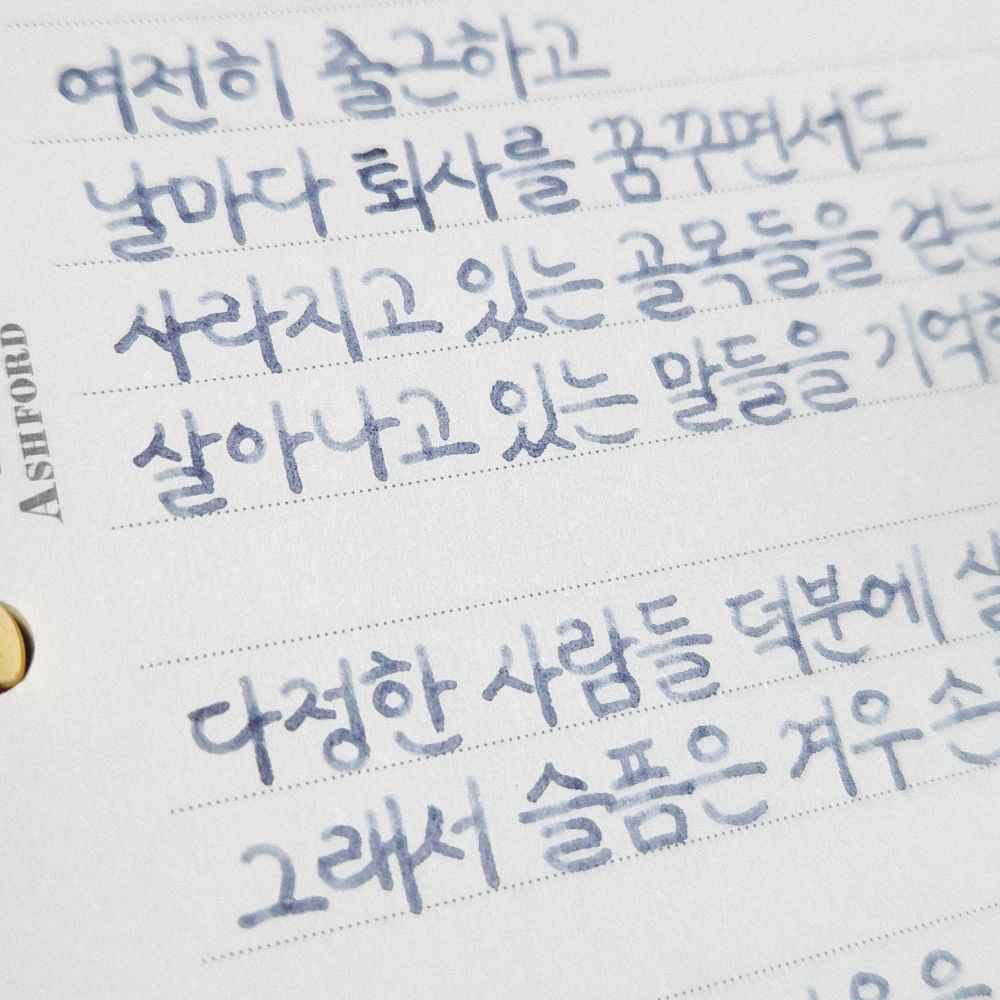 여전히 출근하고
날마다 퇴사를 꿈꾸면서도
사라지고 있는 골목들을 걷는
살아나고 있는 말들을
다정한 사람들 덕분에
그래서 슬픔은 겨우
ASHFORD